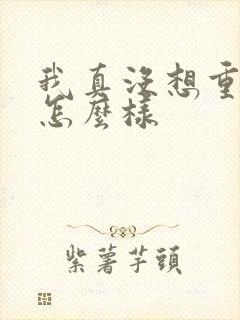 我真沒想重
怎麼樣
紫薯芋頭